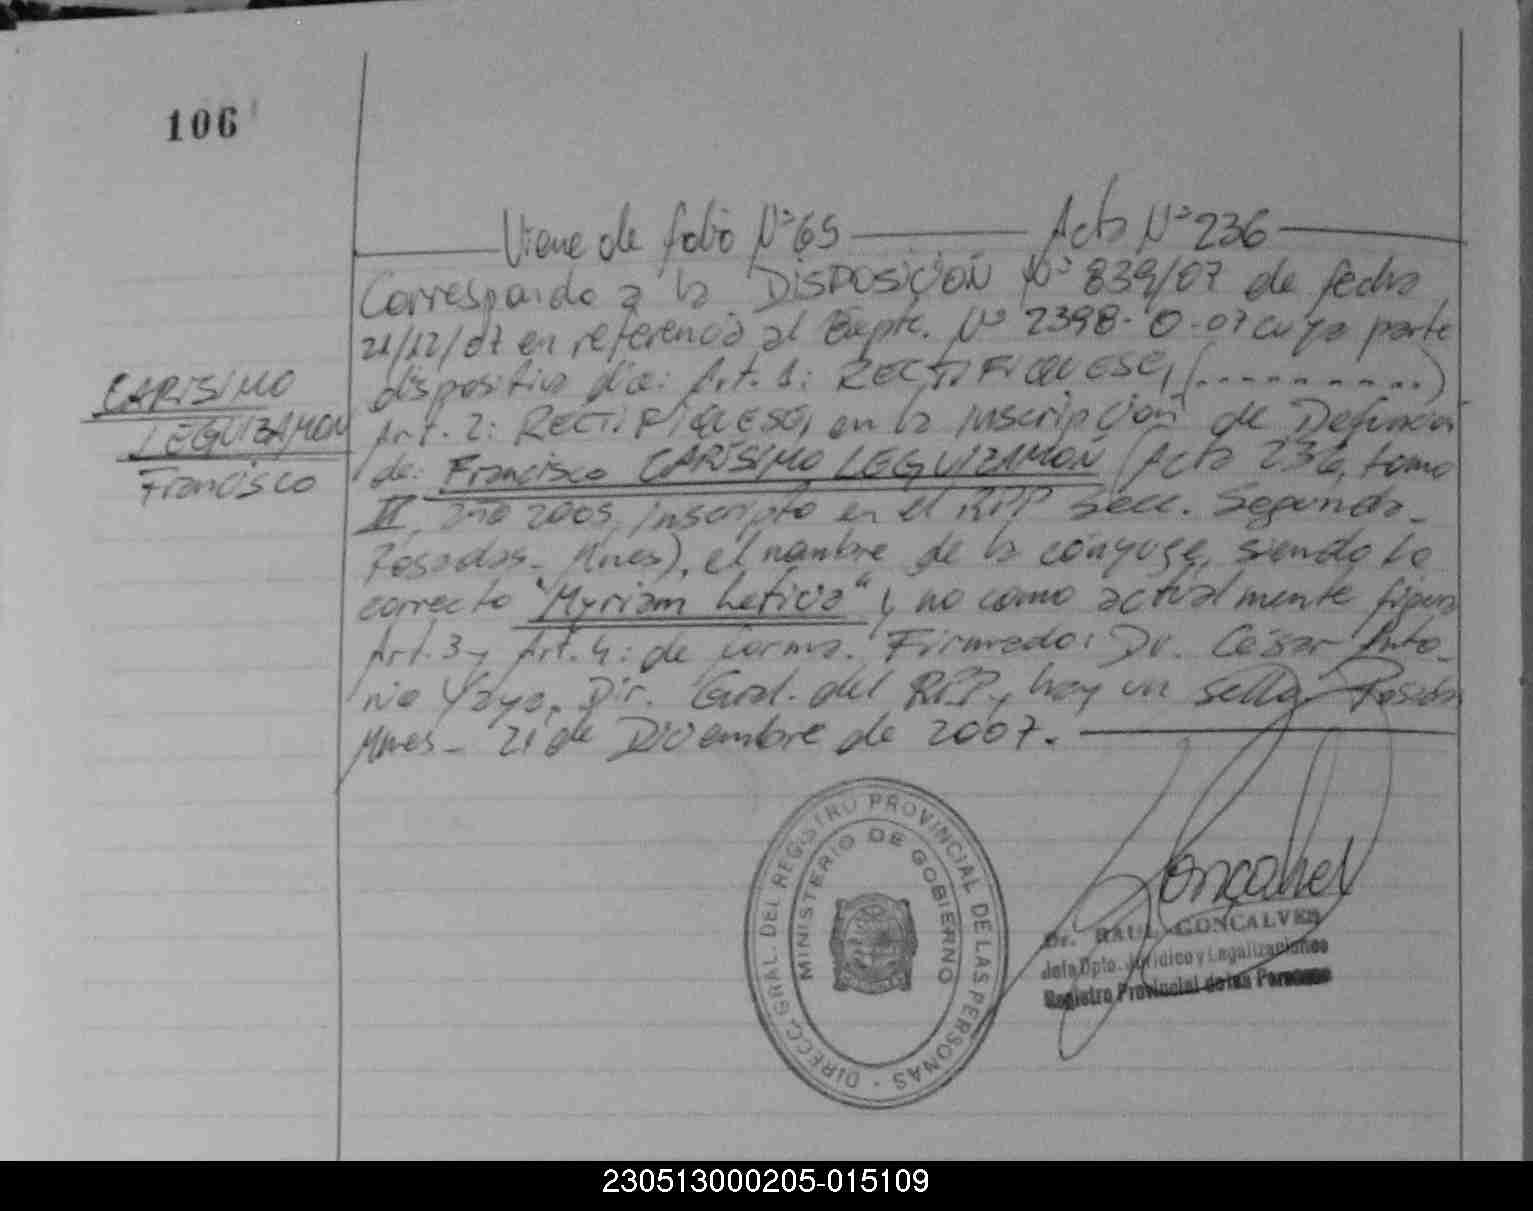 106
Viene de folio Nº 65 Acta Nº 236
Corresponde a la DISPOSICIÓN Nº 839/07 de fecha
21/12/07 en referencia al Expte. Nº 2398-O-07 cuya parte
dispositiva dice: Art. 1: RECTIFIQUESE, (..........)
CARÍSIMO
LEGUIZAMON
Francisco
Art. 2: RECTIFIQUESE, en la inscripción de Defunción
de: Francisco CARÍSIMO LEGUIZAMÓN (Acta 236, tomo
II, año 2005, inscripto en el RPP Secc. Segunda-
Posadas- Mnes), el nombre de la cónyuge, siendo lo
correcto "Myriam Leticia" y no como actualmente figura
Art. 3 y Art. 4: de forma. Firmado: Dr. César Anto-
nio Yaya, Dir. Gral. del RPP, hay un sello, Posadas
Mnes- 21 de Diciembre de 2007.
DIRECC. GRAL. DEL REGISTRO PROVINCIAL DE LAS PERSONAS -
MINISTERIO DE GOBIERNO
Dr. RAUL GONCALVES
Jefe Dpto. Jurídico y Legalizaciones
Registro Provincial de las Personas
230513000205-015109